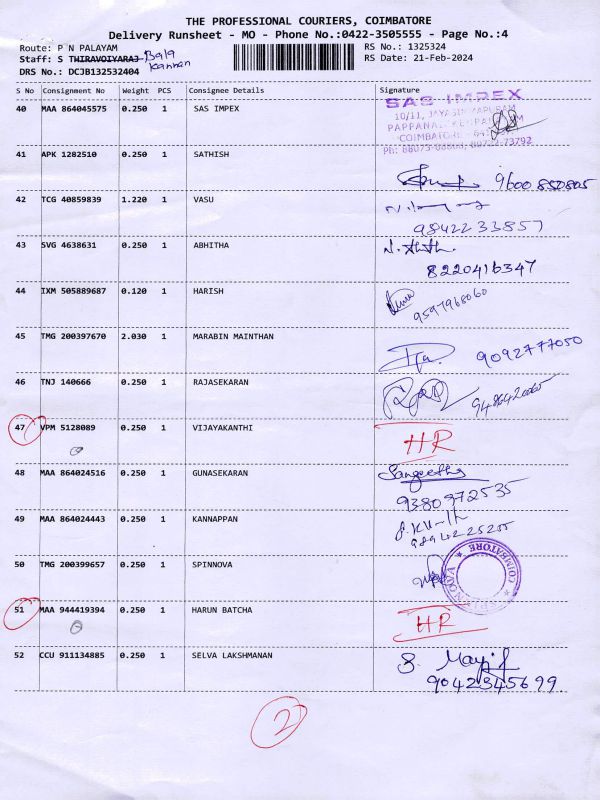 THE PROFESSIONAL COURIERS, COIMBATORE
Delivery Runsheet - MO - Phone No.:0422-3505555 - Page No.:4
Route: P N PALAYAM
RS No.: 1325324
Staff: S THIRAVOIYARAJ Bala Kannan
RS Date: 21-Feb-2024
DRS No.: DCJB132532404
S No Consignment No Weight PCS Consignee Details Signature
40 MAA 864045575 0.250 1 SAS IMPEX
SAS IMPEX
COIMBATORE
41 APK 1282510 0.250 1 SATHISH
9600 850805
42 TCG 40859839 1.220 1 VASU
9842233857
43 SVG 4638631 0.250 1 ABHITHA
8220416347
44 IXM 505889687 0.120 1 HARISH
9597968060
45 TMG 200397670 2.030 1 MARABIN MAINTHAN
9092777050
46 TNJ 140666 0.250 1 RAJASEKARAN
47 VPM 5128089 0.250 1 VIJAYAKANTHI
HR
48 MAA 864024516 0.250 1 GUNASEKARAN
Sangeetha
9380972535
49 MAA 864024443 0.250 1 KANNAPPAN
50 TMG 200399657 0.250 1 SPINNOVA
COIMBATORE
51 MAA 944419394 0.250 1 HARUN BATCHA
HR
52 CCU 911134885 0.250 1 SELVA LAKSHMANAN
9042345699
2